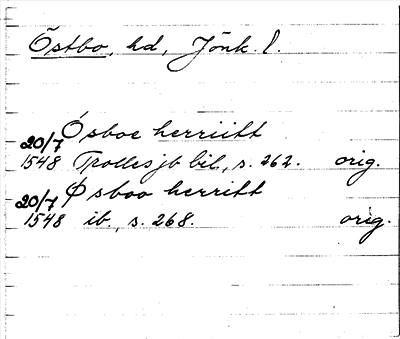 Östbo, hd, Jönk. l.
20/7 Ósboe herriitt
1548 Trolles jb bil., s. 262. orig.
20/7 Øsboo herritt
1548 ib., s. 268. orig.